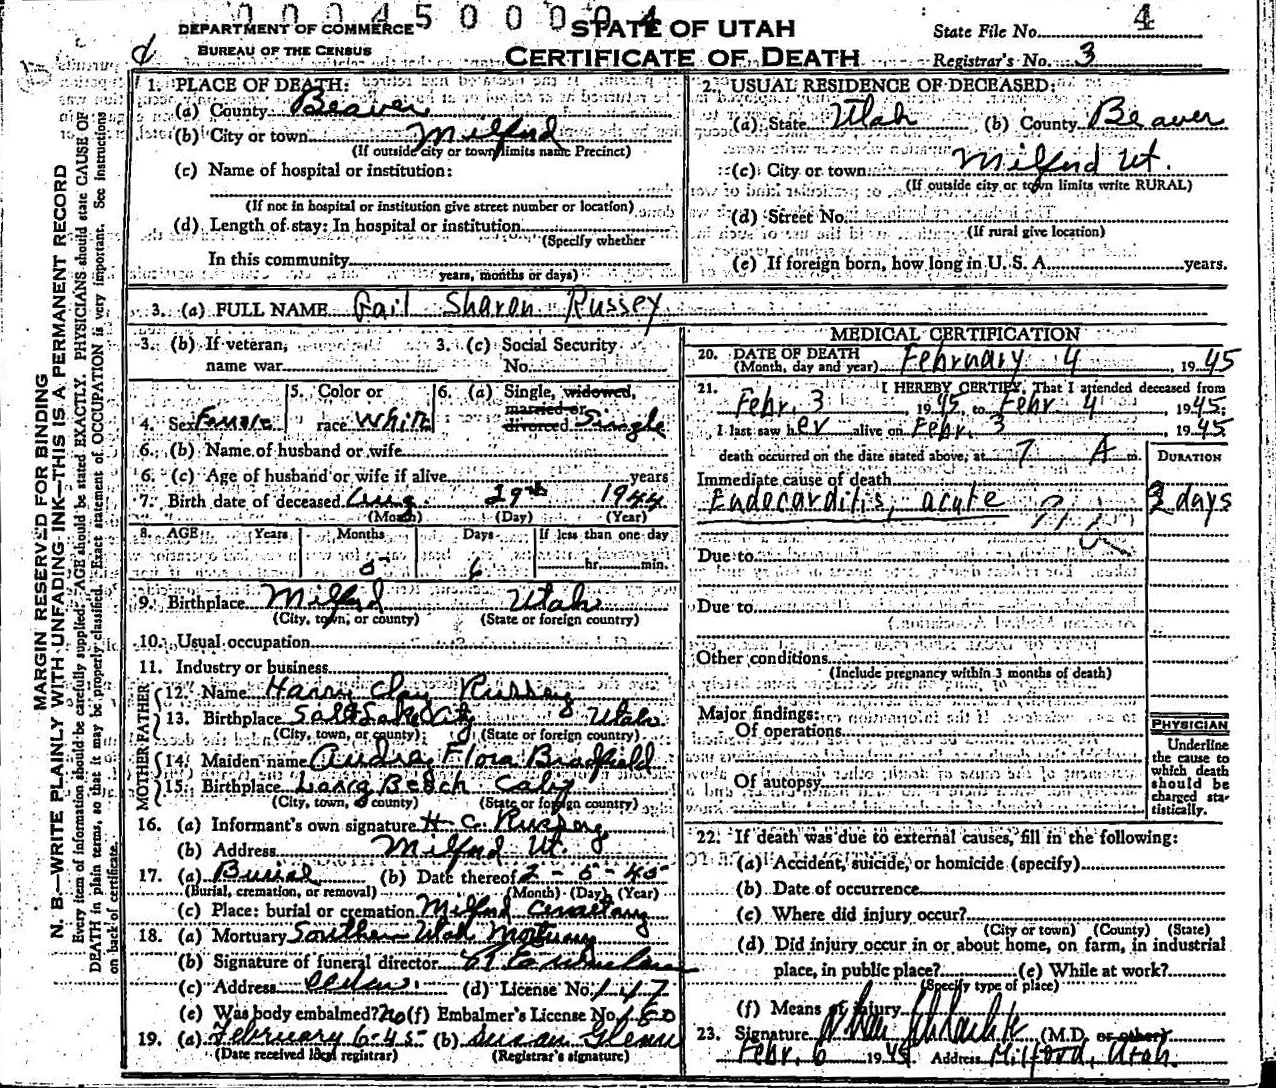 0 0 0 4 5 0 0 0 0 4
DEPARTMENT OF COMMERCE
BUREAU OF THE CENSUS
STATE OF UTAH
CERTIFICATE OF DEATH
State File No. 4
Registrar's No. 3
MARGIN RESERVED FOR BINDING
N. B.—WRITE PLAINLY WITH UNFADING INK—THIS IS A PERMANENT RECORD
Every item of information should be carefully supplied. AGE should be stated EXACTLY. PHYSICIANS should state CAUSE OF
DEATH in plain terms, so that it may be properly classified. Exact statement of OCCUPATION is very important. See instructions
on back of certificate.
1. PLACE OF DEATH:
(a) County Beaver
(b) City or town Milford
(If outside city or town limits name Precinct)
(c) Name of hospital or institution:
(If not in hospital or institution give street number or location)
(d) Length of stay: In hospital or institution
(Specify whether
In this community
years, months or days)
2. USUAL RESIDENCE OF DECEASED:
(a) State Utah (b) County Beaver
(c) City or town Milford Ut.
(If outside city or town limits write RURAL)
(d) Street No.
(If rural give location)
(e) If foreign born, how long in U. S. A. years.
3. (a) FULL NAME Gail Sharon Russey
3. (b) If veteran, name war
3. (c) Social Security No.
4. Sex Female
5. Color or race White
6. (a) Single, widowed, married or divorced Single
6. (b) Name of husband or wife
6. (c) Age of husband or wife if alive years
7. Birth date of deceased Aug. 29th 1944
(Month) (Day) (Year)
8. AGE Years Months Days If less than one day
5 6 hr. min.
9. Birthplace Milford Utah
(City, town, or county) (State or foreign country)
10. Usual occupation
11. Industry or business
FATHER
12. Name Harry Clay Russey
13. Birthplace Salt Lake City Utah
(City, town, or county) (State or foreign country)
MOTHER
14. Maiden name Audrey Flora Bradfield
15. Birthplace Long Beach Calif
(City, town, or county) (State or foreign country)
16. (a) Informant's own signature H. C. Russey
(b) Address Milford Ut.
17. (a) Burial (b) Date thereof 2-5-45
(Burial, cremation, or removal) (Month) (Day) (Year)
(c) Place: burial or cremation Milford Cemetary
18. (a) Mortuary Southern Utah Mortuary
(b) Signature of funeral director
(c) Address Cedar. (d) License No. 147
(e) Was body embalmed? No (f) Embalmer's License No. 180
19. (a) February 6-45 (b) Susan Glenn
(Date received local registrar) (Registrar's signature)
MEDICAL CERTIFICATION
20. DATE OF DEATH
(Month, day and year) February 4 1945
21. I HEREBY CERTIFY, That I attended deceased from
Febr. 3, 1945, to Febr. 4, 1945;
I last saw her alive on Febr. 3, 1945
death occurred on the date stated above, at 7 A m.
DURATION
Immediate cause of death
Endocarditis, acute 2 days
Due to
Due to
Other conditions
(Include pregnancy within 3 months of death)
Major findings:
Of operations
Of autopsy
PHYSICIAN
Underline
the cause to
which death
should be
charged sta-
tistically.
22. If death was due to external causes, fill in the following:
(a) Accident, suicide, or homicide (specify)
(b) Date of occurrence
(c) Where did injury occur?
(City or town) (County) (State)
(d) Did injury occur in or about home, on farm, in industrial
place, in public place? (e) While at work?
(Specify type of place)
(f) Means of injury
23. Signature (M.D. or other)
Febr. 6 1945 Address Milford, Utah.